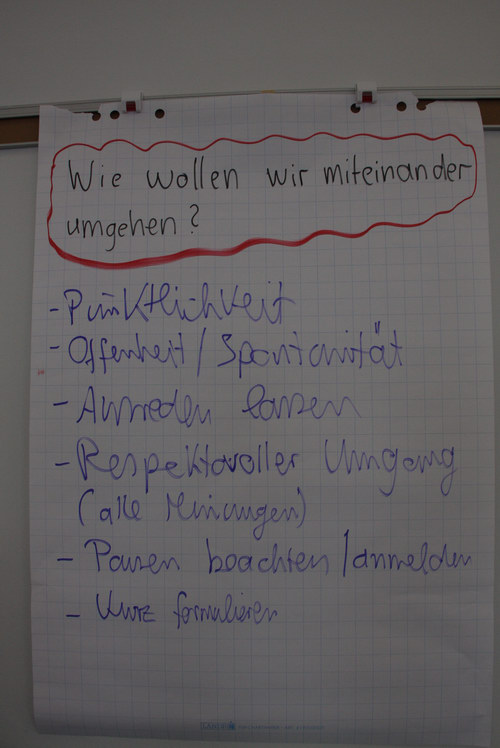 Wie wollen wir miteinander
umgehen?
- Pünktlichkeit
- Offenheit / Spontanität
- Ausreden lassen
- Respektvoller Umgang
(alle Meinungen)
- Pausen beachten / anmelden
- Kurz formulieren